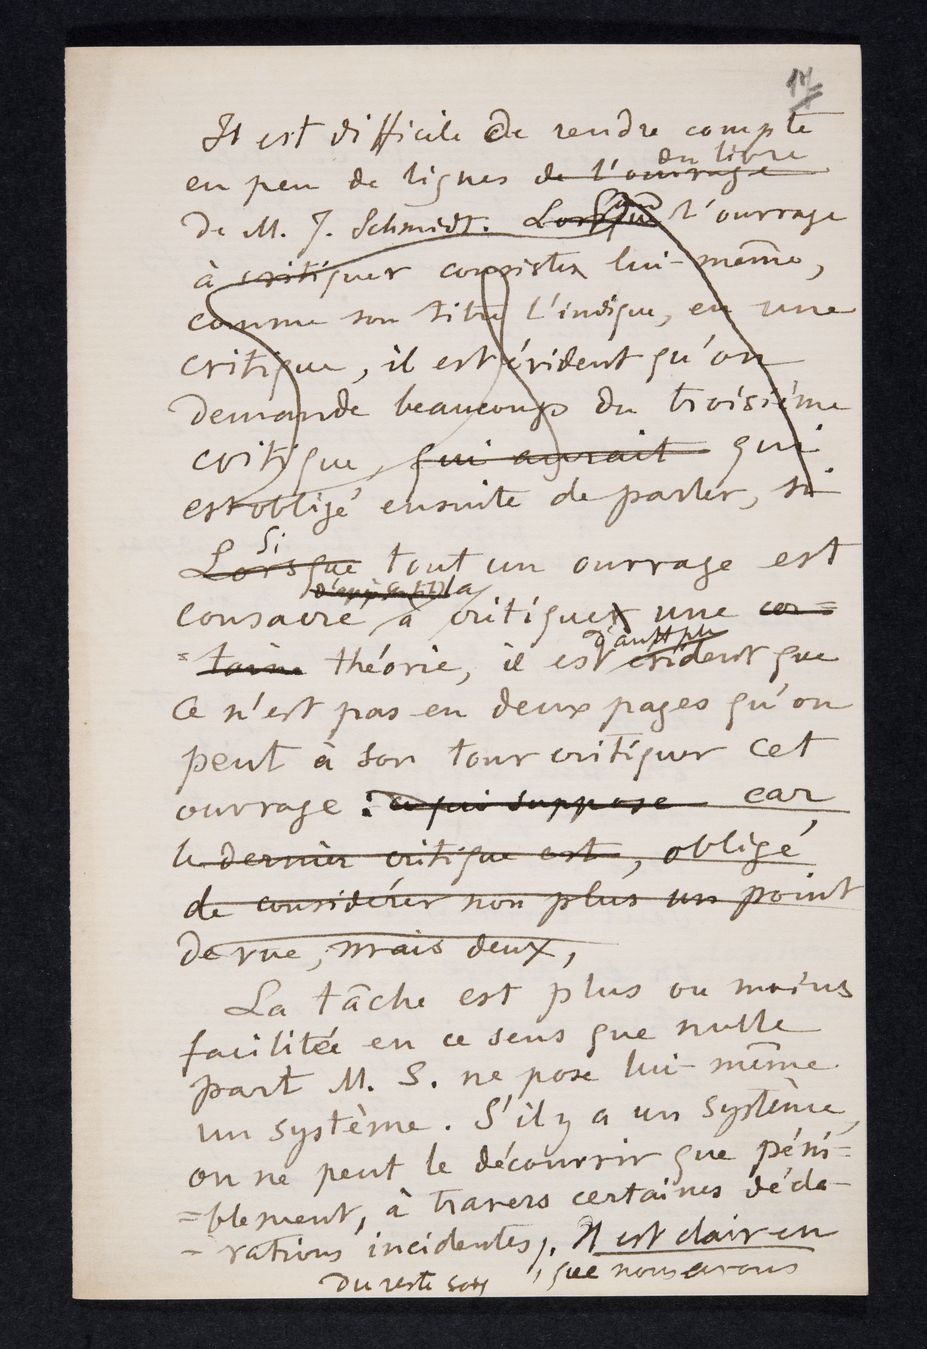 17
Il est difficile de rendre compte
en peu de lignes de l'ouvrage du livre
de M. J. Schmidt. Lorsque l'ouvrage
à critiquer consiste lui-même,
comme son titre l'indique, en une
critique, il est évident qu'on
demande beaucoup du troisième
critique, qui aurait qui
est obligé ensuite de parler, si
Lorsque Si tout un ouvrage est
consacré à la critiquer une cer=
=taine théorie, il est évident que
ce n'est pas en deux pages qu'on
peut à son tour critiquer cet
ouvrage : ce qui suppose car
le dernier critique est, obligé
de considérer non plus un point
de vue, mais deux,
La tâche est plus ou moins
facilitée en ce sens que nulle
part M. S. ne pose lui-même
un système. S'il y a un système,
on ne peut le découvrir que péni=
=blement, à travers certaines décla-
-rations incidentes, . Il est clair en
du reste , que nous avons